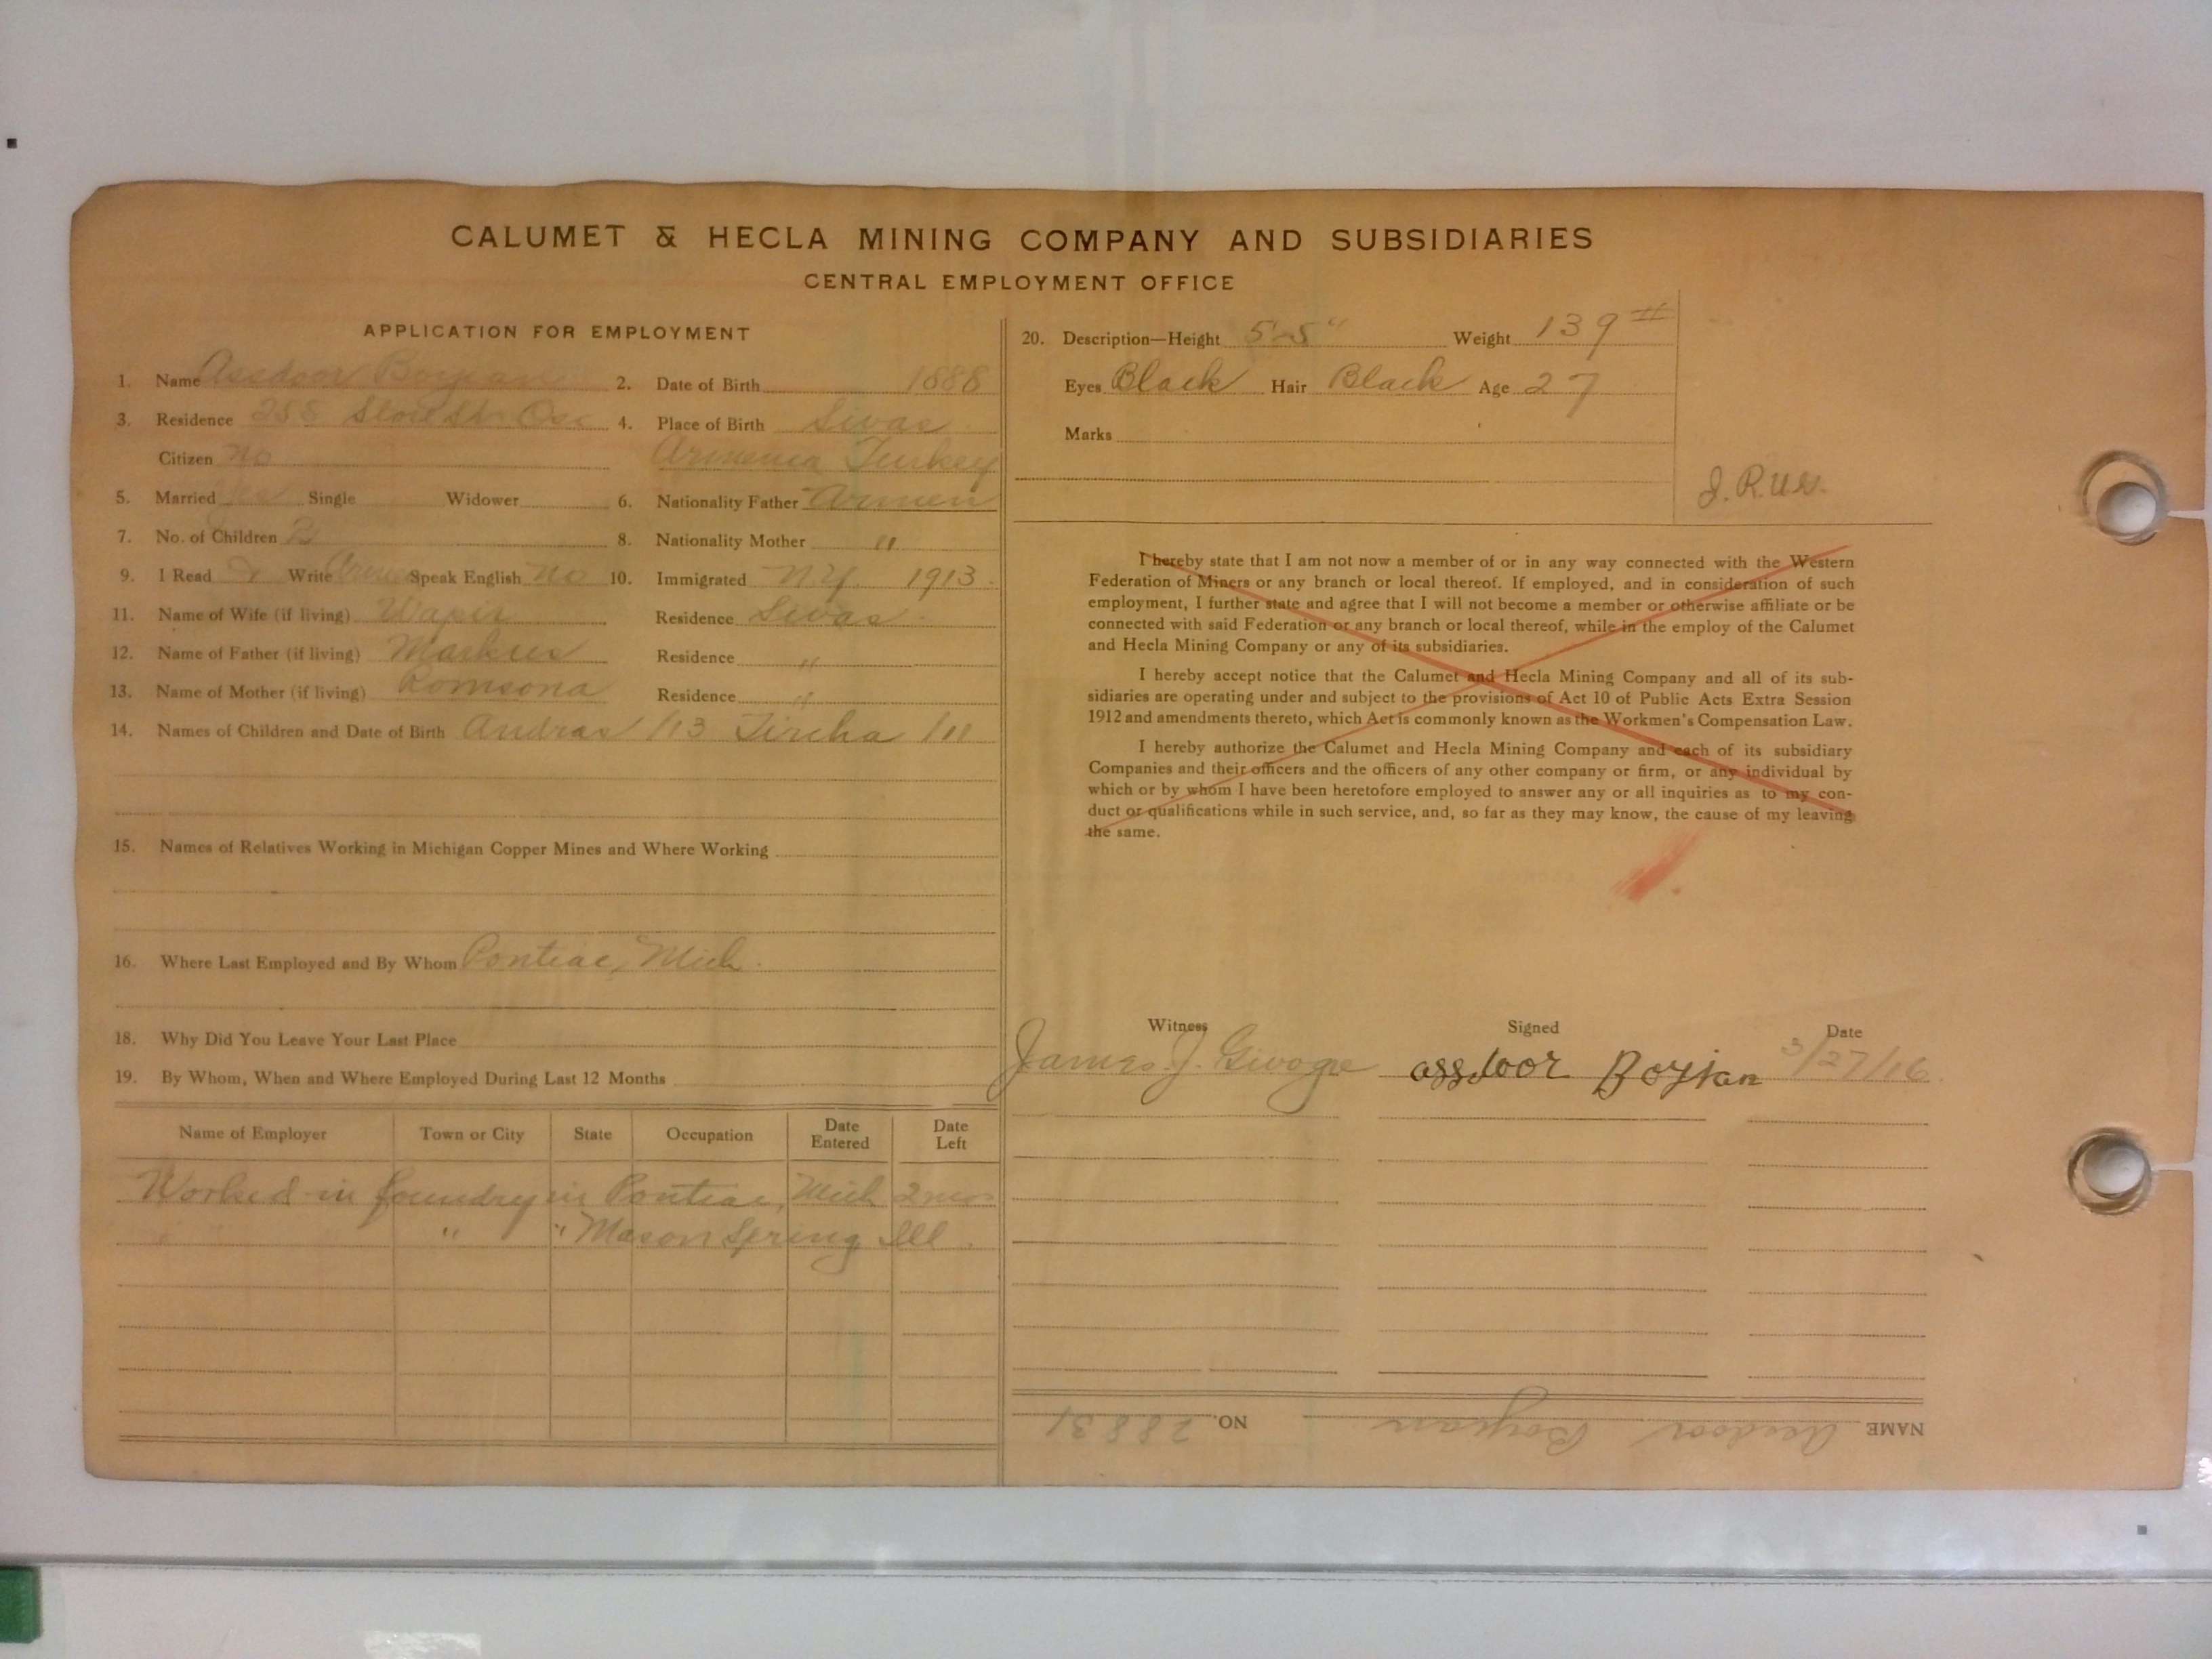 CALUMET & HECLA MINING COMPANY AND SUBSIDIARIES
CENTRAL EMPLOYMENT OFFICE
APPLICATION FOR EMPLOYMENT
1. Name Asedoor Boyjan 2. Date of Birth 1888
3. Residence 258 St. Osc 4. Place of Birth Sivas
Citizen No Armenia Turkey
5. Married Yes Single Widower 6. Nationality Father Armen
7. No. of Children 2 8. Nationality Mother "
9. I Read & Write Armen Speak English No 10. Immigrated N.Y. 1913
11. Name of Wife (if living) Wapir Residence Sivas
12. Name of Father (if living) Markus Residence "
13. Name of Mother (if living) Romsona Residence "
14. Names of Children and Date of Birth Andras /13 /11
15. Names of Relatives Working in Michigan Copper Mines and Where Working
16. Where Last Employed and By Whom Pontiac, Mich.
18. Why Did You Leave Your Last Place
19. By Whom, When and Where Employed During Last 12 Months
Name of Employer Town or City State Occupation Date Entered Date Left
Worked in foundry in Pontiac, Mich 2 mos
" " " Mason Spring Ill.
20. Description—Height 5'-5" Weight 139 #
Eyes Black Hair Black Age 27
Marks
I hereby state that I am not now a member of or in any way connected with the Western
Federation of Miners or any branch or local thereof. If employed, and in consideration of such
employment, I further state and agree that I will not become a member or otherwise affiliate or be
connected with said Federation or any branch or local thereof, while in the employ of the Calumet
and Hecla Mining Company or any of its subsidiaries.
I hereby accept notice that the Calumet and Hecla Mining Company and all of its sub-
sidiaries are operating under and subject to the provisions of Act 10 of Public Acts Extra Session
1912 and amendments thereto, which Act is commonly known as the Workmen's Compensation Law.
I hereby authorize the Calumet and Hecla Mining Company and each of its subsidiary
Companies and their officers and the officers of any other company or firm, or any individual by
which or by whom I have been heretofore employed to answer any or all inquiries as to my con-
duct or qualifications while in such service, and, so far as they may know, the cause of my leaving
the same.
Witness Signed Date
James J. assdoor Boyjan 3/27/16
NAME Asedoor Boyjan NO. 28831